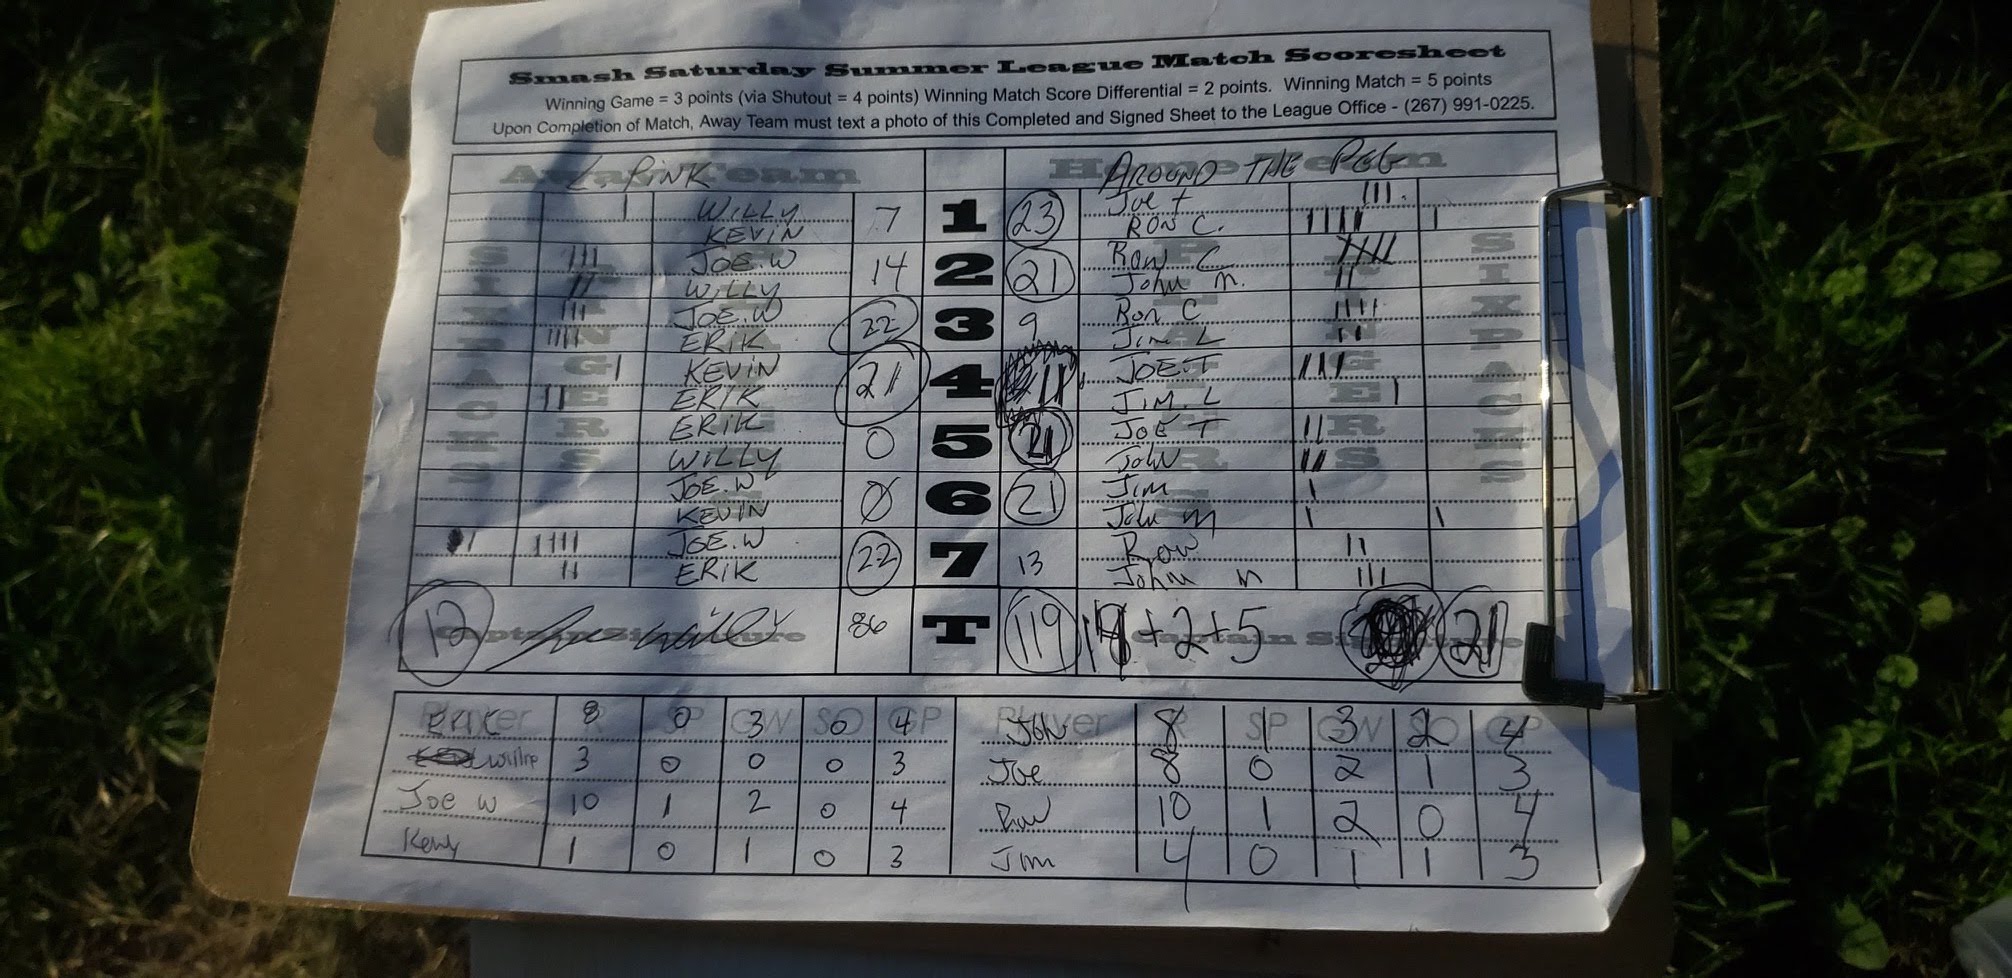 Smash Saturday Summer League Match Scoresheet
Winning Game = 3 points (via Shutout = 4 points) Winning Match Score Differential = 2 points. Winning Match = 5 points
Upon Completion of Match, Away Team must text a photo of this Completed and Signed Sheet to the League Office - (267) 991-0225.
Away Team PINK Home Team AROUND THE PEG
WILLY 7 1 23 Joe T
KEVIN RON C.
JOE.W 14 2 21 Ron C
WILLY John M.
JOE.W 22 3 9 Ron C
ERIK Jim L
KEVIN 21 4 11 JOE.T
ERIK JIM.L
ERIK 0 5 21 JOE T
WILLY John
JOE.W 0 6 21 Jim
KEVIN John M
JOE.W 22 7 13 Ron
ERIK John M
SIX PACKS
RINGERS
RINGERS
SIX PACKS
12 Captain Signature 86 T 119 +2+5 Captain Signature 21
Player R SP GW SO GP Player R SP GW SO GP
ERIK 8 0 3 0 4 JOHN 8 1 3 2 4
Willie 3 0 0 0 3 Joe 8 0 2 1 3
Joe W 10 1 2 0 4 Ron 10 1 2 0 4
1 0 1 0 3 Jim 4 0 1 1 3